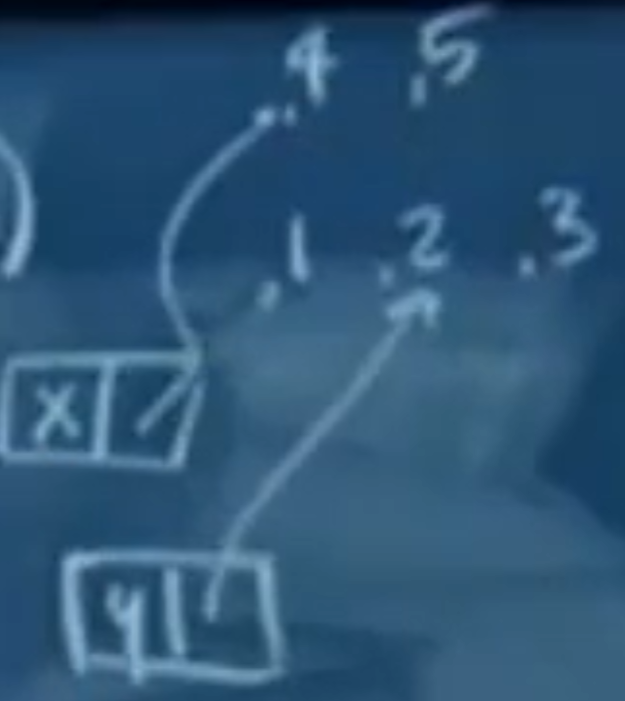 .4 .5
.1 .2 .3
x
y